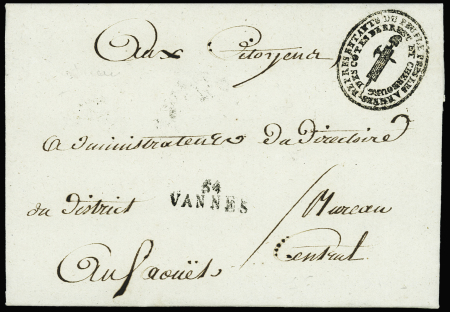 Aux Citoyens
REPRESENTANTS DU PEUPLE PRES LES ARMÉES
DES COTES DE BREST ET CHERBOURG
administrateurs du Directoire
du District
54
VANNES
Bureau
Central
Au faouët